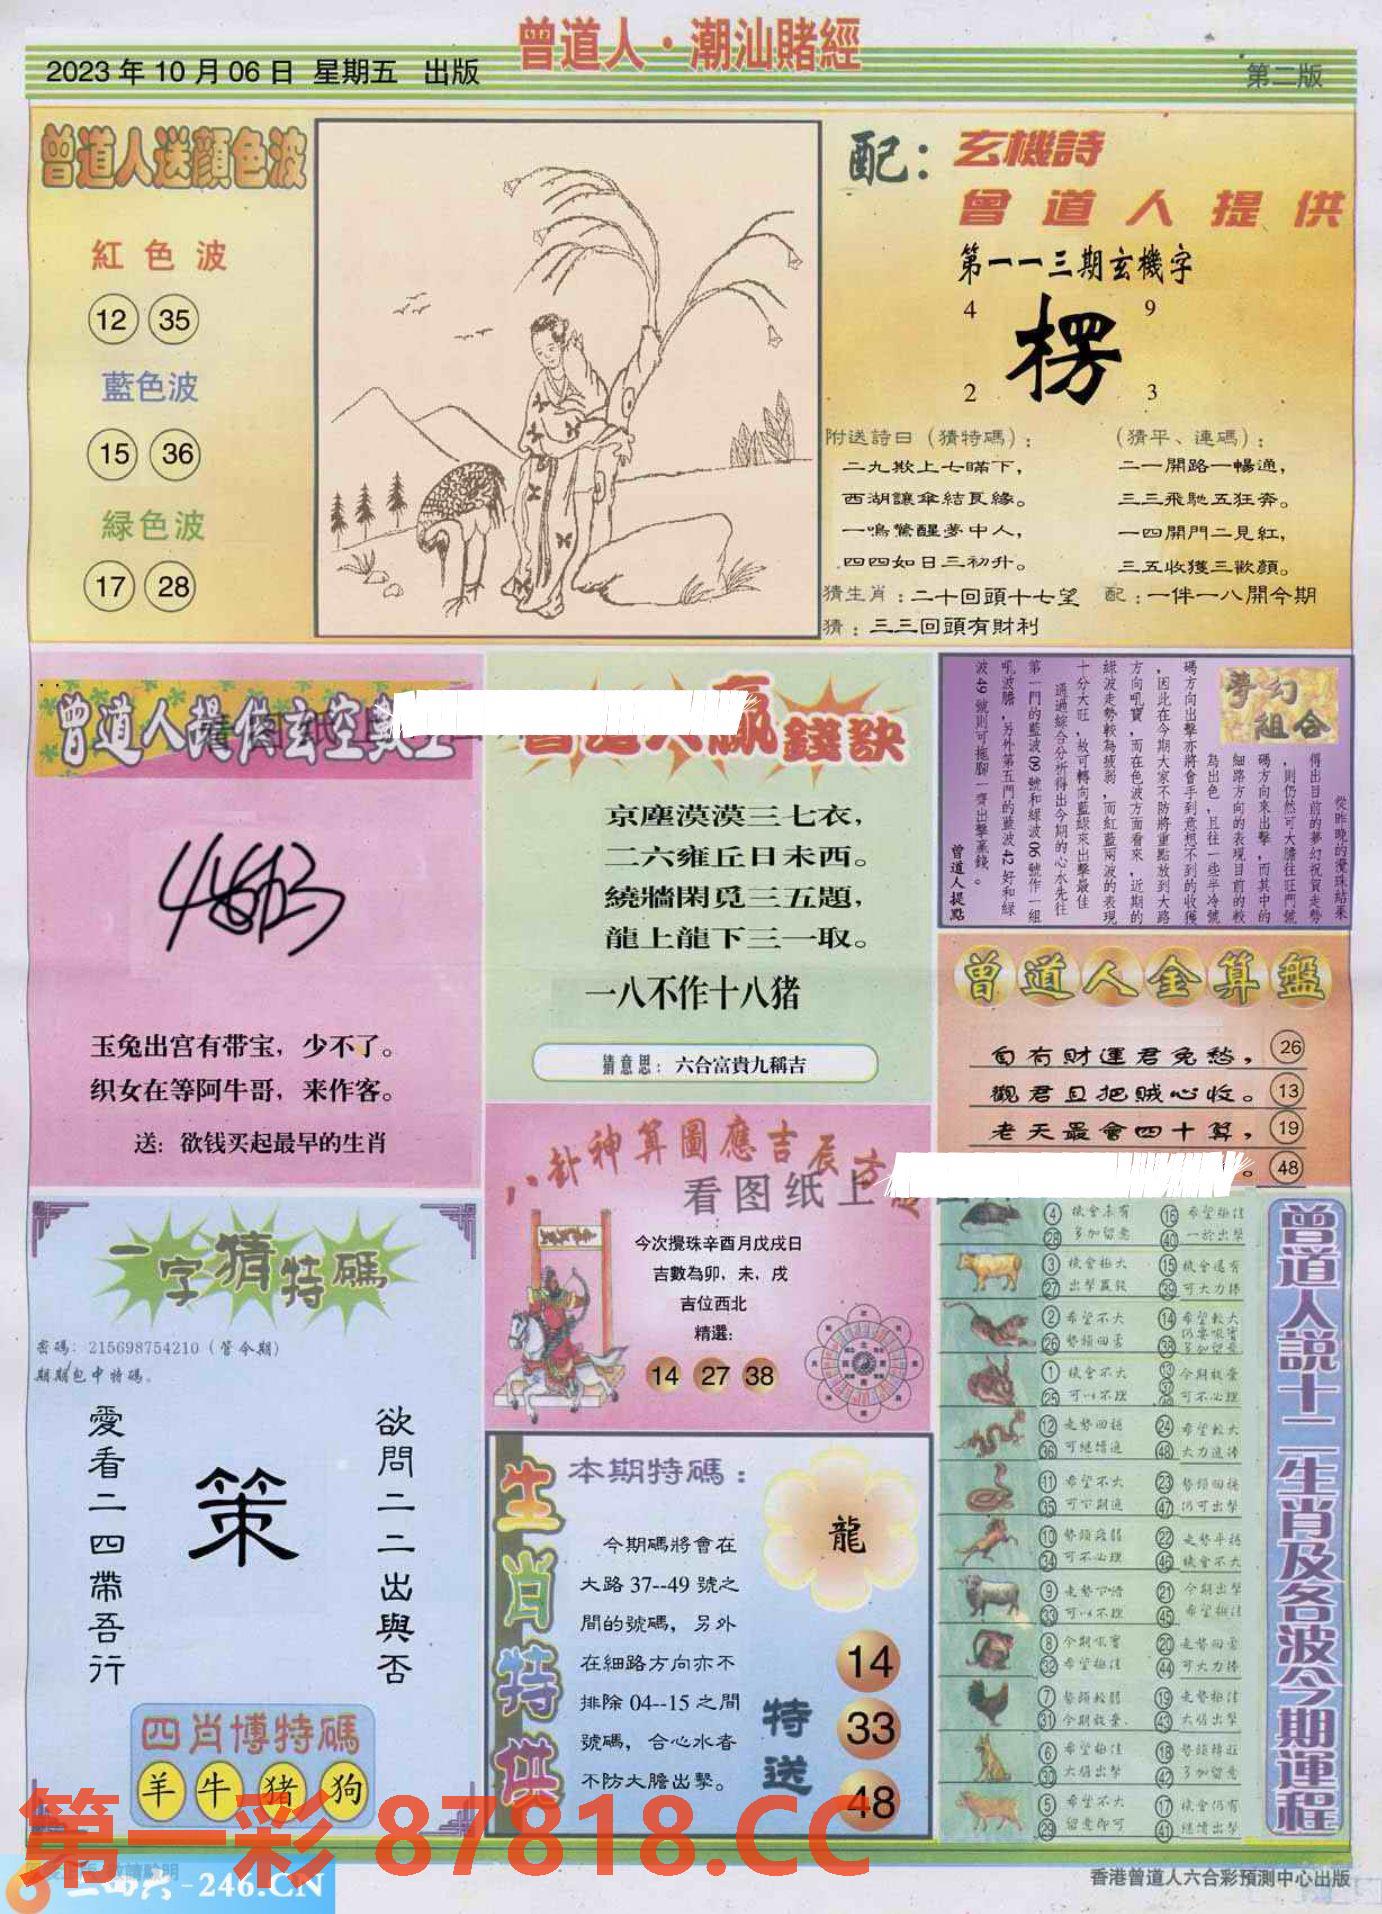 曾道人·潮汕賭經
2023年10月06日 星期五 出版
第二版
曾道人送顏色波
紅色波
12 35
藍色波
15 36
緑色波
17 28
配：玄機詩
曾道人提供
第一一三期玄機字
4 9
楞
2 3
附送詩曰（猜特碼）：
二九欺上七瞞下，
西湖讓傘結良緣。
一鳴驚醒夢中人，
四四如日三初升。
猜生肖：二十回頭十七望
猜：三三回頭有財利
（猜平、連碼）：
二一開路一暢通，
三三飛馳五狂奔。
一四開門二見紅，
三五收獲三歡顏。
配：一伴一八開今期
曾道人提供玄空數
玉兔出宫有带宝，少不了。
织女在等阿牛哥，来作客。
送：欲钱买起最早的生肖
贏錢訣
京塵漠漠三七衣，
二六雍丘日未西。
繞牆閑覓三五題，
龍上龍下三一取。
一八不作十八猪
猜意思：六合富貴九稱吉
夢幻組合
從昨晚的攪珠結果
得出目前的夢幻祝賀走勢
，則仍然可大膽往旺門號
碼方向來出擊，而其中的
細路方向的表現目前的較
為出色，且往一些半冷號
碼方向出擊亦將會手到意想不到的收獲
，因此在今期大家不防將重點放到大路
方向吼寶，而在色波方面看來，近期的
綠波走勢較為疲弱，而紅藍兩波的表現
十分大旺，故可轉向藍綠來出擊最佳
通過綜合分析得出今期的心水先往
第一門的藍波09號和綠波06號作一組
吼波膽，另外第五門的藍波42好和綠
波49號則可拖膠一齊出擊贏錢。
曾道人提點
曾道人金算盤
旬有財運君免愁，26
觀君且把賊心收。13
老天最會四十算，19
。48
八卦神算圖應吉辰方位
看图纸上
今次攪珠辛酉月戊戌日
吉數為卯，未，戌
吉位西北
精選：
14 27 38
一字猜特碼
密碼：215698754210（管今期）
期期包中特碼。
欲問二二出與否
策
愛看二四帶吾行
四肖博特碼
羊 牛 猪 狗
生肖特供
本期特碼：
龍
今期碼將會在
大路37--49號之
間的號碼，另外
在細路方向亦不
排除04--15之間
號碼，合心水者
不防大膽出擊。
特送
14
33
48
曾道人説十二生肖及各波今期運程
4 機會未有 16 希望極佳
28 多加留意 40 一於出擊
3 機會極大 15 機會還有
27 出擊贏錢 39 可大力捧
2 希望不大 14 希望較大
26 勢頭回落 38
1 機會不大 13 今期放棄
25 可以不理 可不必理
12 走勢回穩 24 希望較大
36 可繼續追 48 大力追捧
11 希望不大 23 勢頭回穩
35 可下期追 47 仍可出擊
10 勢頭疲弱 22 走勢平穩
34 可不必理 46 機會不大
9 走勢下滑 21 今期出擊
33 可以不理 45 希望極佳
8 今期吼寶 20 走勢回落
32 希望極佳 44 可大力捧
7 勢頭較弱 19 走勢極佳
31 今期放棄 43 大膽出擊
6 希望極佳 18 勢頭轉旺
30 大膽出擊 42 多加留意
5 希望不大 17 機會仍有
29 留意即可 41 繼續出擊
第一彩 87818.CC
二四六-246.CN
香港曾道人六合彩預測中心出版